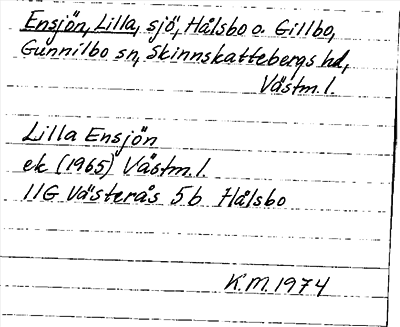 Ensjön, Lilla, sjö, Hålsbo o. Gillbo,
Gunnilbo sn, Skinnskattebergs hd,
Västm.l.
Lilla Ensjön
ek (1965) Västm.l.
11G Västerås 5b Hålsbo
K.M. 1974